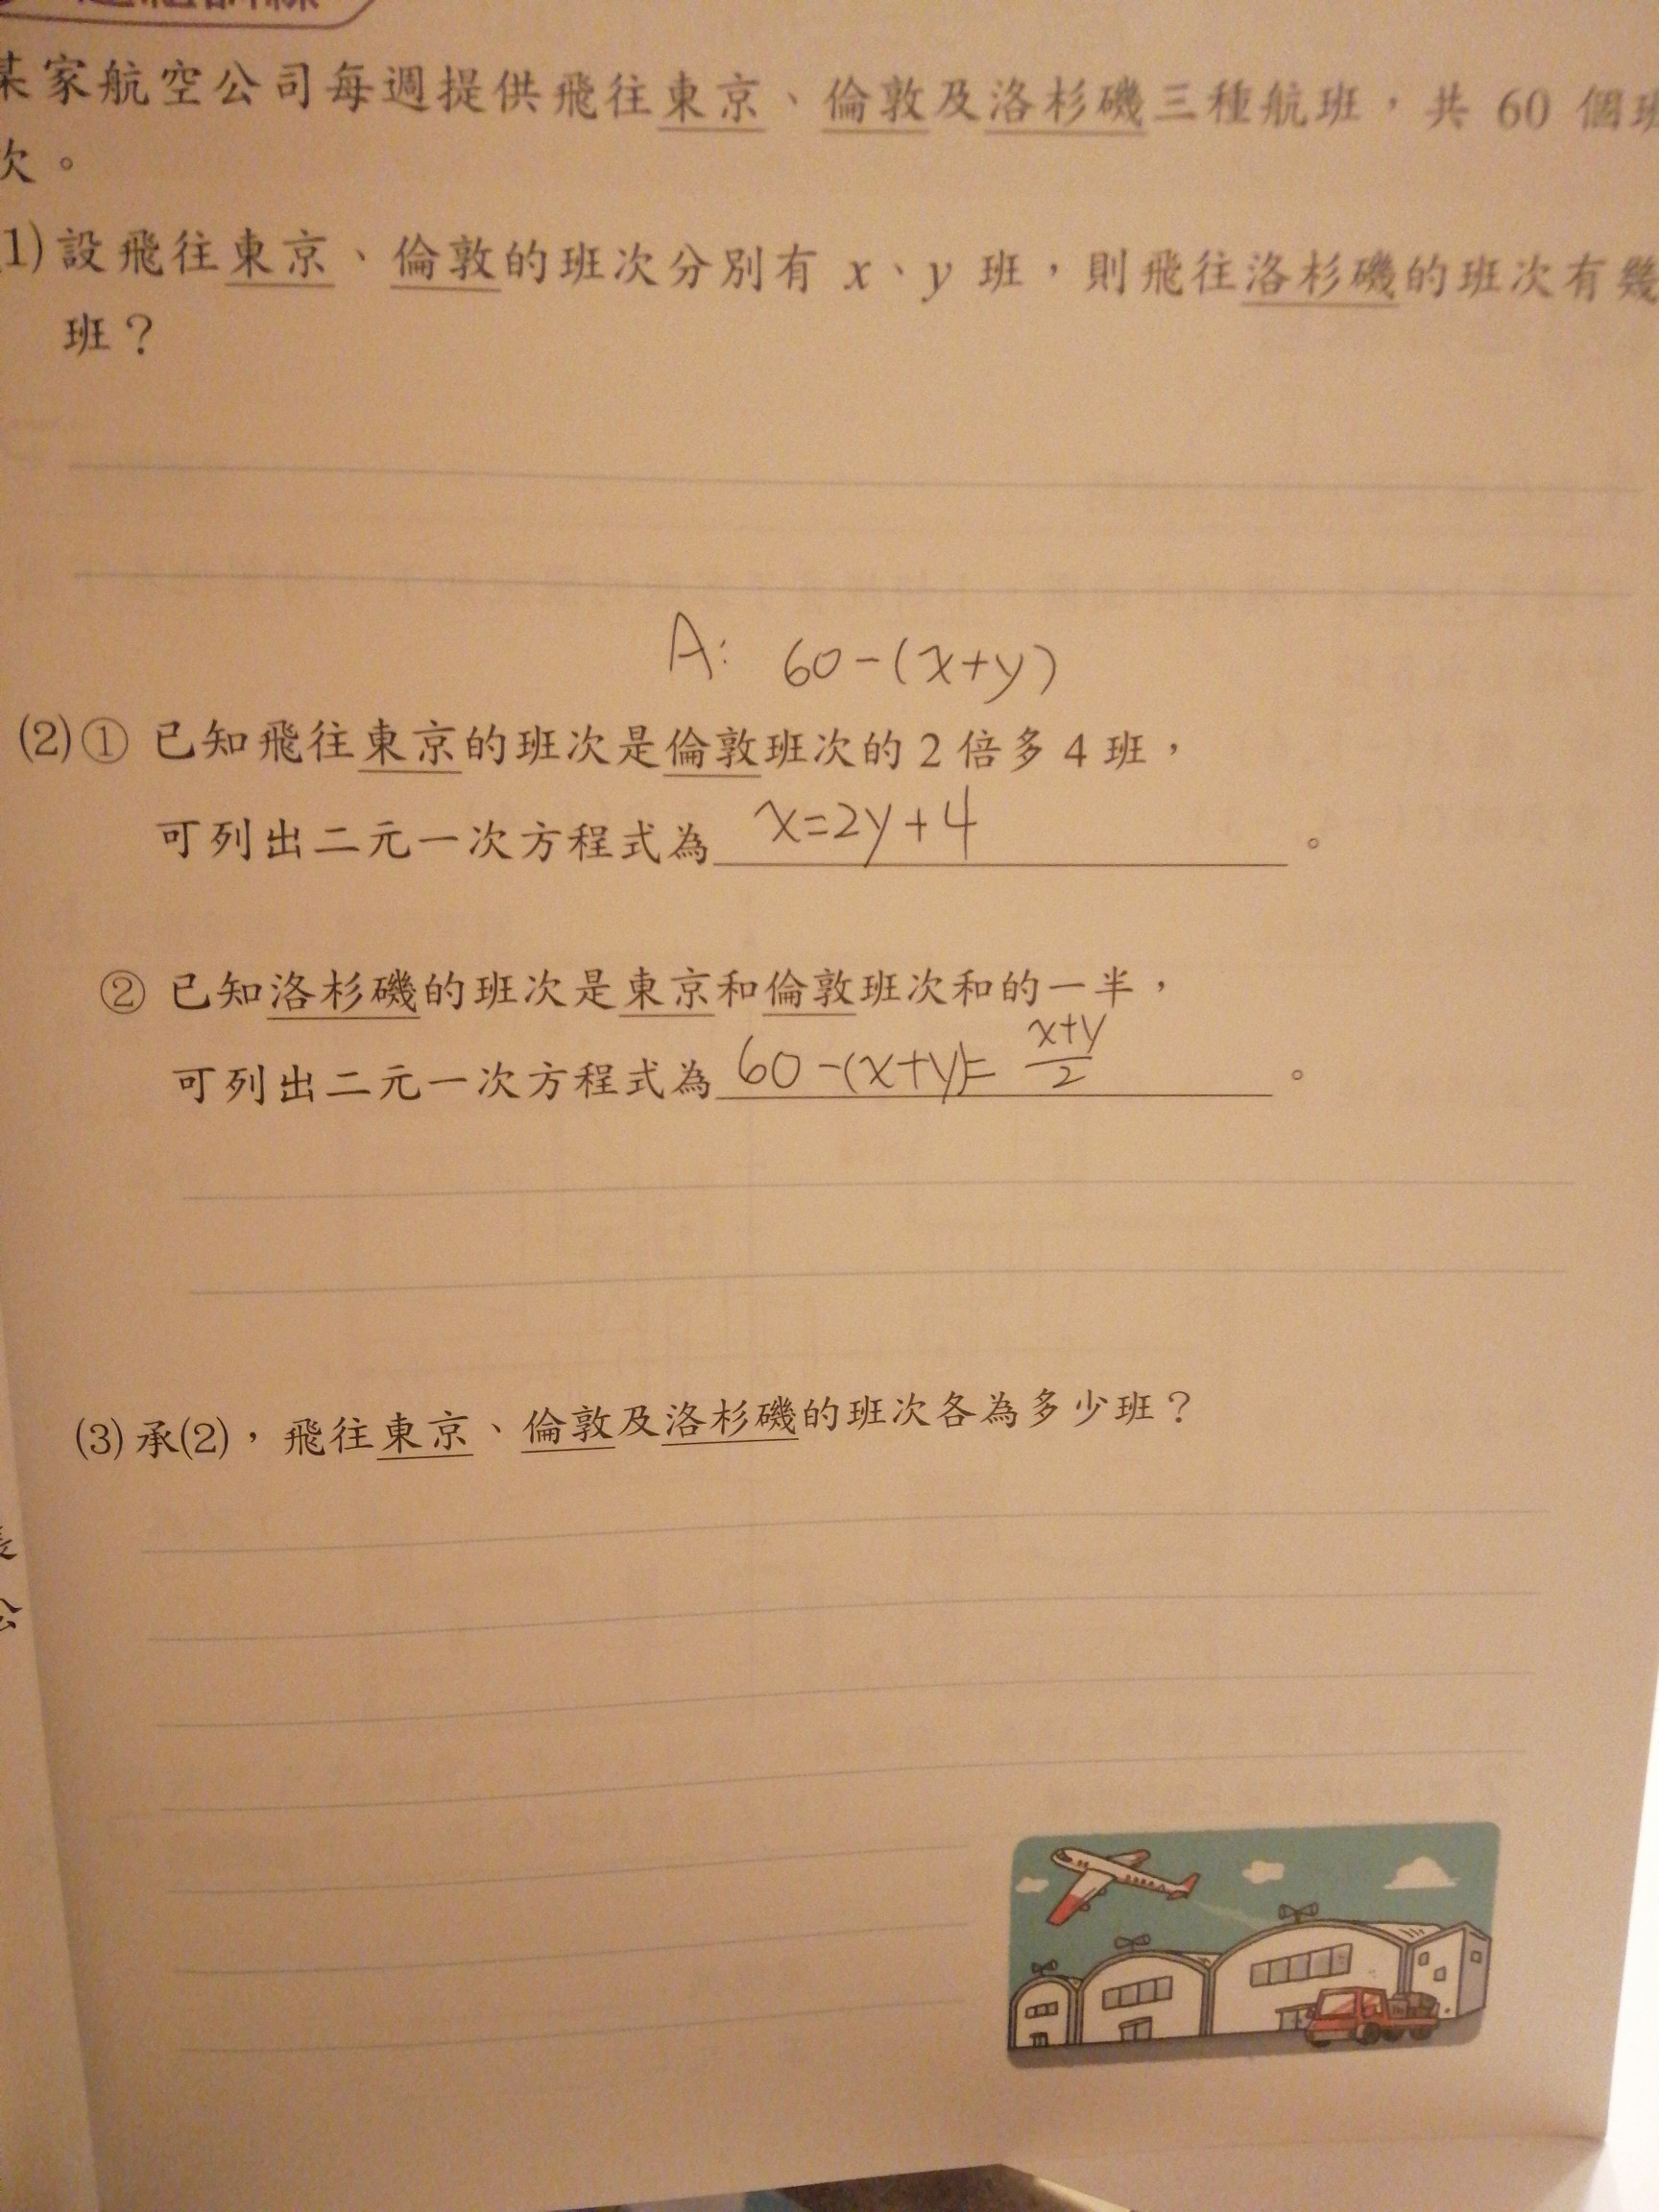 某家航空公司每週提供飛往東京、倫敦及洛杉磯三種航班，共 60 個班
次。
(1)設飛往東京、倫敦的班次分別有 x、y 班，則飛往洛杉磯的班次有幾
班？
A: 60-(x+y)
(2)① 已知飛往東京的班次是倫敦班次的 2 倍多 4 班，
可列出二元一次方程式為 x=2y+4 。
② 已知洛杉磯的班次是東京和倫敦班次和的一半，
可列出二元一次方程式為 60-(x+y)= \frac{x+y}{2} 。
(3)承(2)，飛往東京、倫敦及洛杉磯的班次各為多少班？